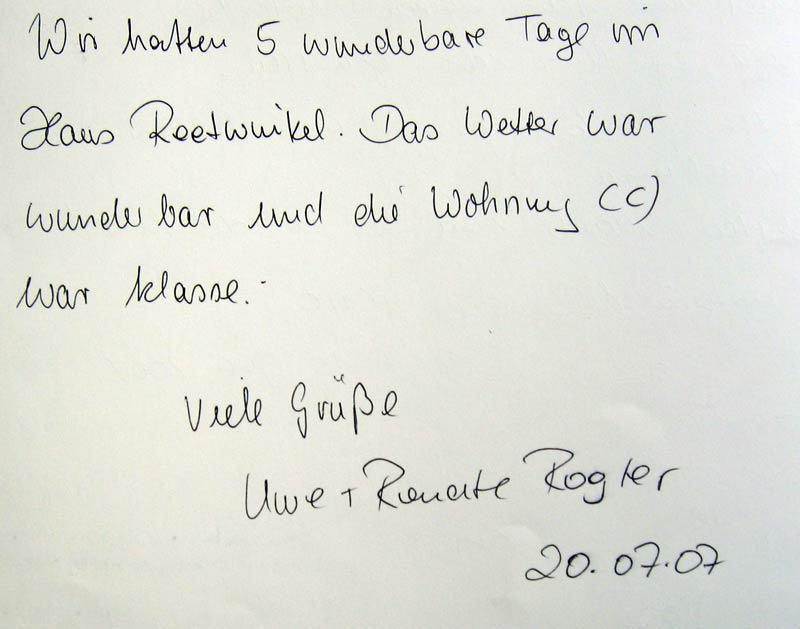 Wir hatten 5 wunderbare Tage im
Haus Reetwinkel. Das Wetter war
wunderbar und die Wohnung (C)
war klasse.-
Viele Grüße
Uwe + Renate Rogler
20.07.07